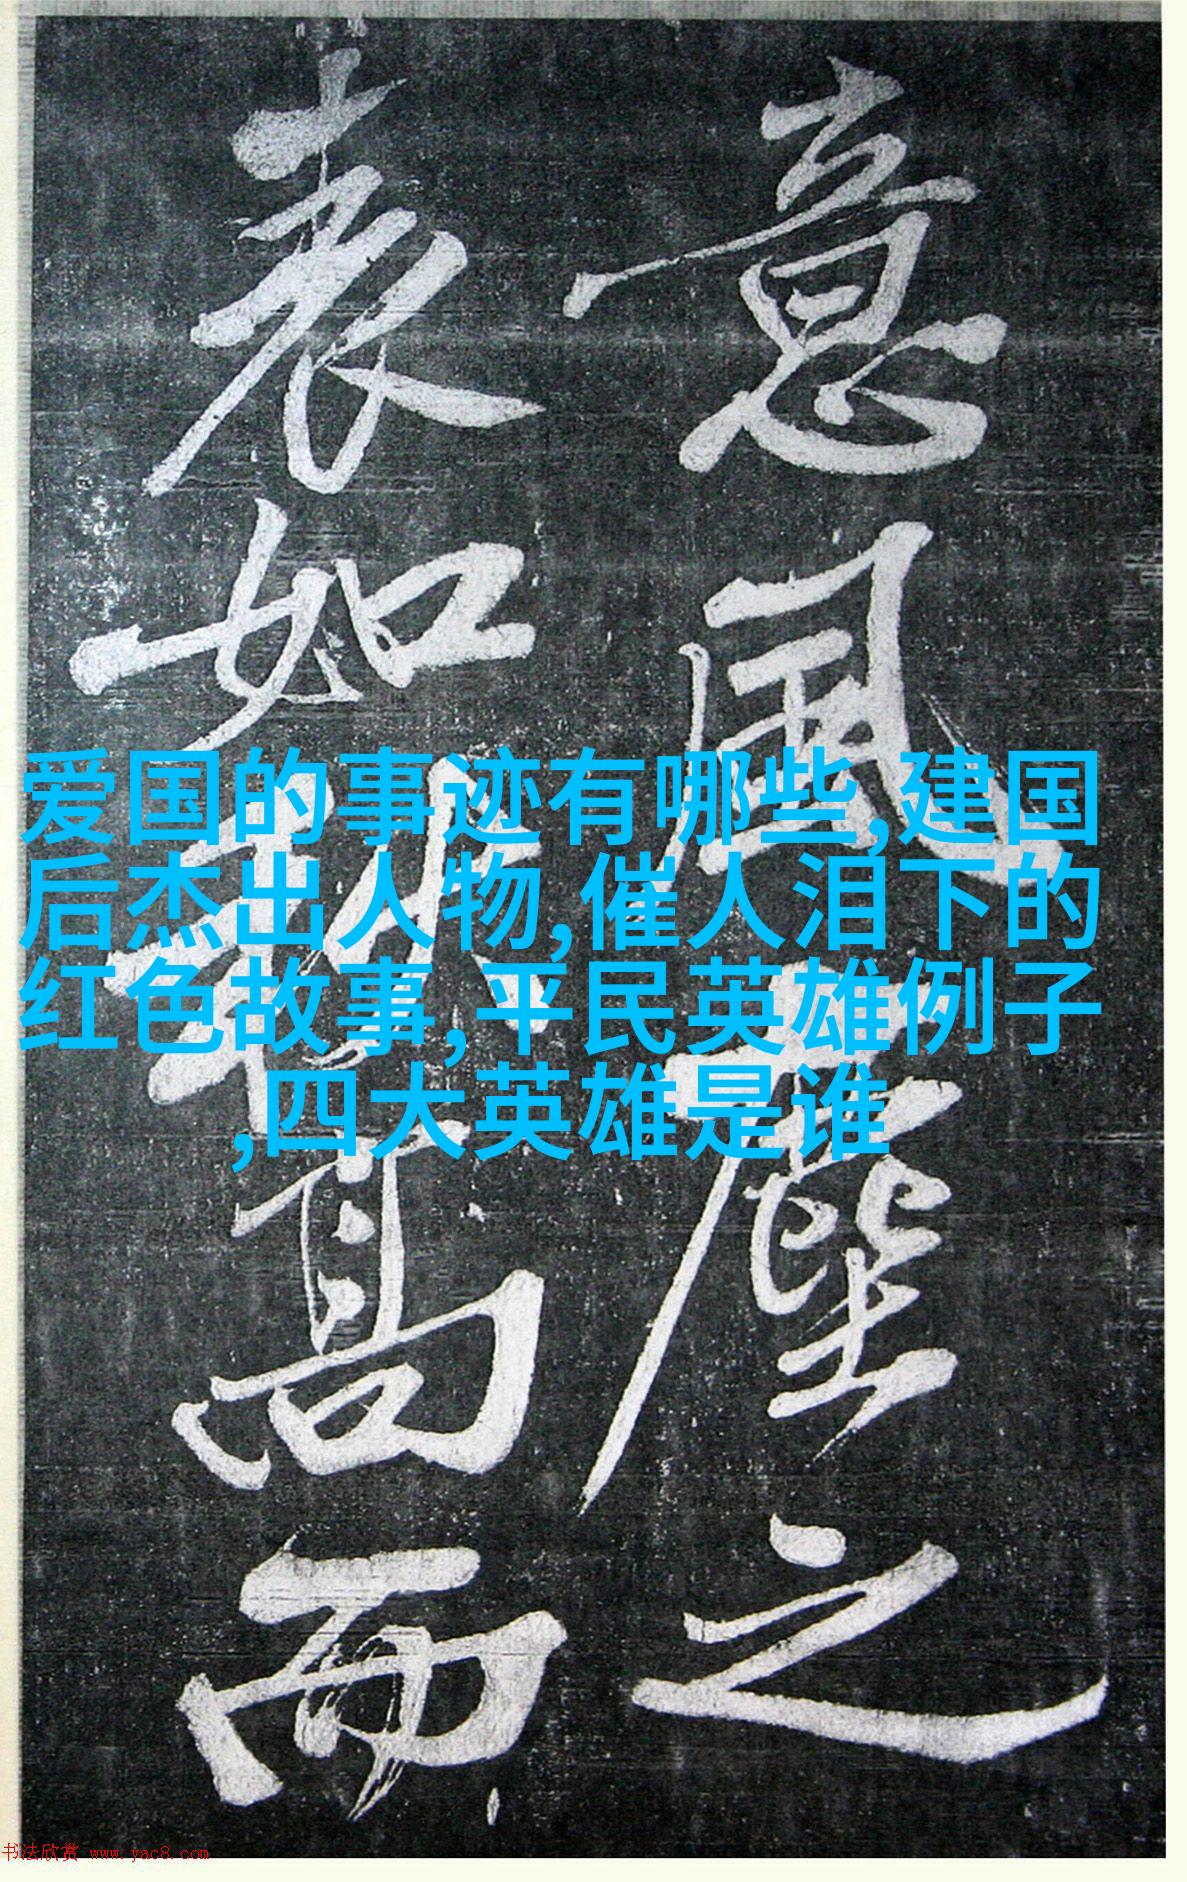 意風塵之
表如秋高而
爱国的事迹有哪些,建国
后杰出人物,催人泪下的
红色故事,平民英雄例子
,四大英雄是谁
书法欣赏 www.yac8.com